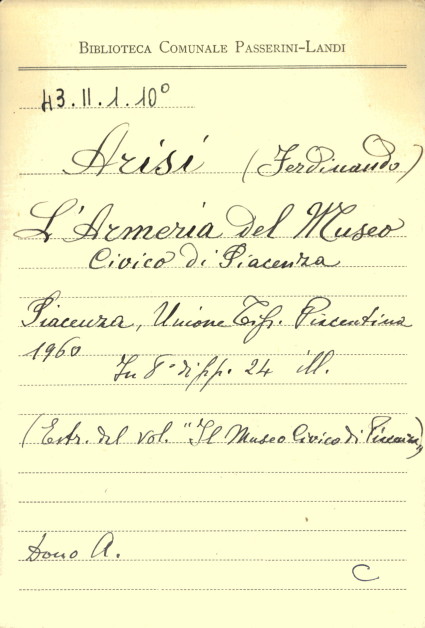 BIBLIOTECA COMUNALE PASSERINI-LANDI
43.II.1.10°
Arisi (Ferdinando)
L'Armeria del Museo
Civico di Piacenza
Piacenza, Unione Tip. Piacentina
1960
In 8° di pp. 24 ill.
(Estr. del vol. "Il Museo Civico di Piacenza")
Dono A.
C